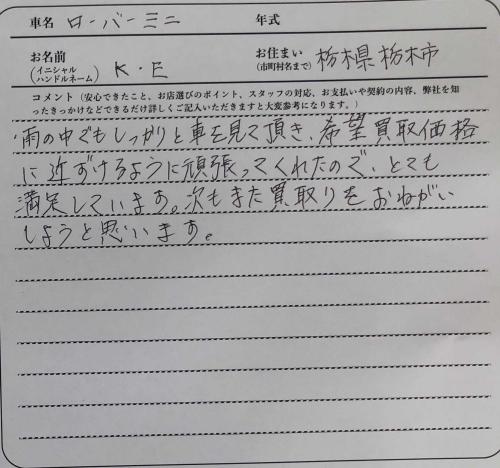 車名 ローバーミニ 年式
お名前 (イニシャル ハンドルネーム) K・E お住まい (市町村名まで) 栃木県栃木市
コメント（安心できたこと、お店選びのポイント、スタッフの対応、お支払いや契約の内容、弊社を知
ったきっかけなどできるだけ詳しくご記入いただきますと大変参考になります。）
雨の中でもしっかりと車を見て頂き、希望買取価格
に近ずけるように頑張ってくれたので、とても
満足しています。次もまた買取りをおねがい
しようと思います。